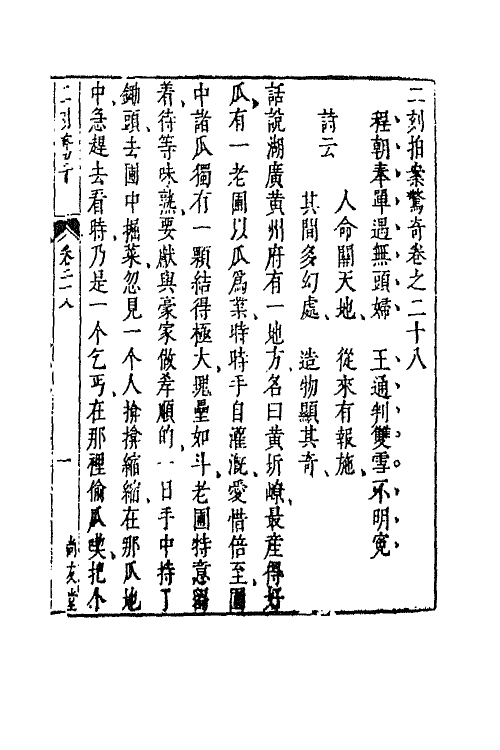 二刻拍案驚奇卷之二十八
程朝奉單遇無頭婦　王通判雙雪不明冤
詩云
人命關天地　從來有報施
其間多幻處　造物顯其奇
話說湖廣黃州府有一地方名曰黃圻嶛最産得好
瓜有一老圃以瓜爲業時時手自灌漑愛惜倍至圃
中諸瓜獨有一顆結得極大塊壘如斗老圃特意留
着待等味熟要獻與豪家做孝順的一日手中持了
鋤頭去圃中掘菜忽見一个人掩掩縮縮在那瓜地
中急趕去看時乃是一个乞丐在那裡偷瓜喫把个
二刻驚奇
卷二十八
一
尚友堂